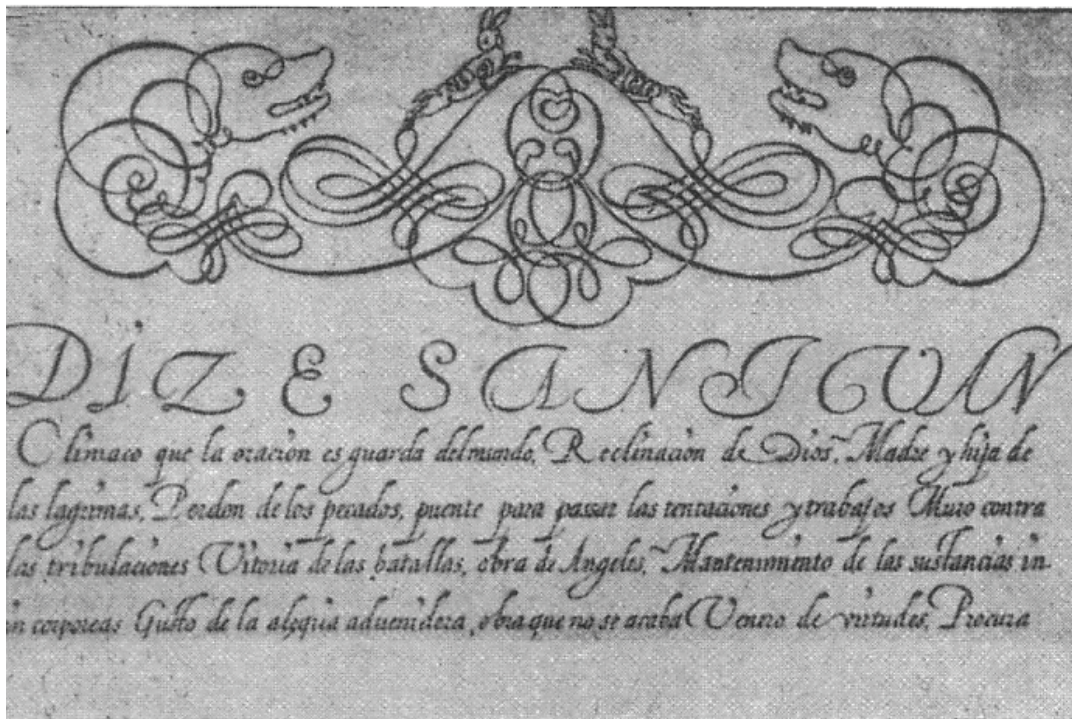 DIZE SANIUAN
Climaco que la oracion es guarda del mundo, Reclinacion de Dios, Madre y hija de
las lagrimas, Perdon de los pecados, puente para passar las tentaciones y trabajos Muro contra
las tribulaciones Vitoria de las batallas, obra de Angeles, Mantenimiento de las sustancias in-
in corporeas Gusto de la alegria aduenidera, obra que no se acaba Venero de virtudes, Procura